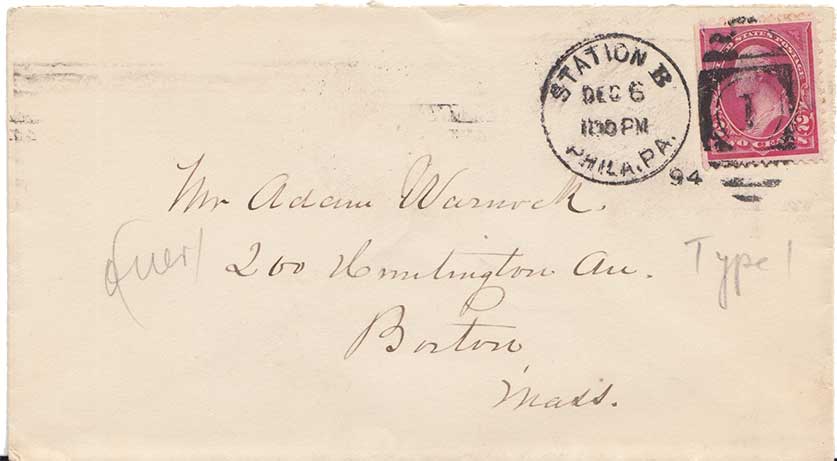 STATION B
DEC 6
1100PM
PHILA, PA.
94
UNITED STATES POSTAGE
2
TWO CENTS
1
Mr Adam Warnock.
200 Huntington Av.
Type 1
Boston
Mass.